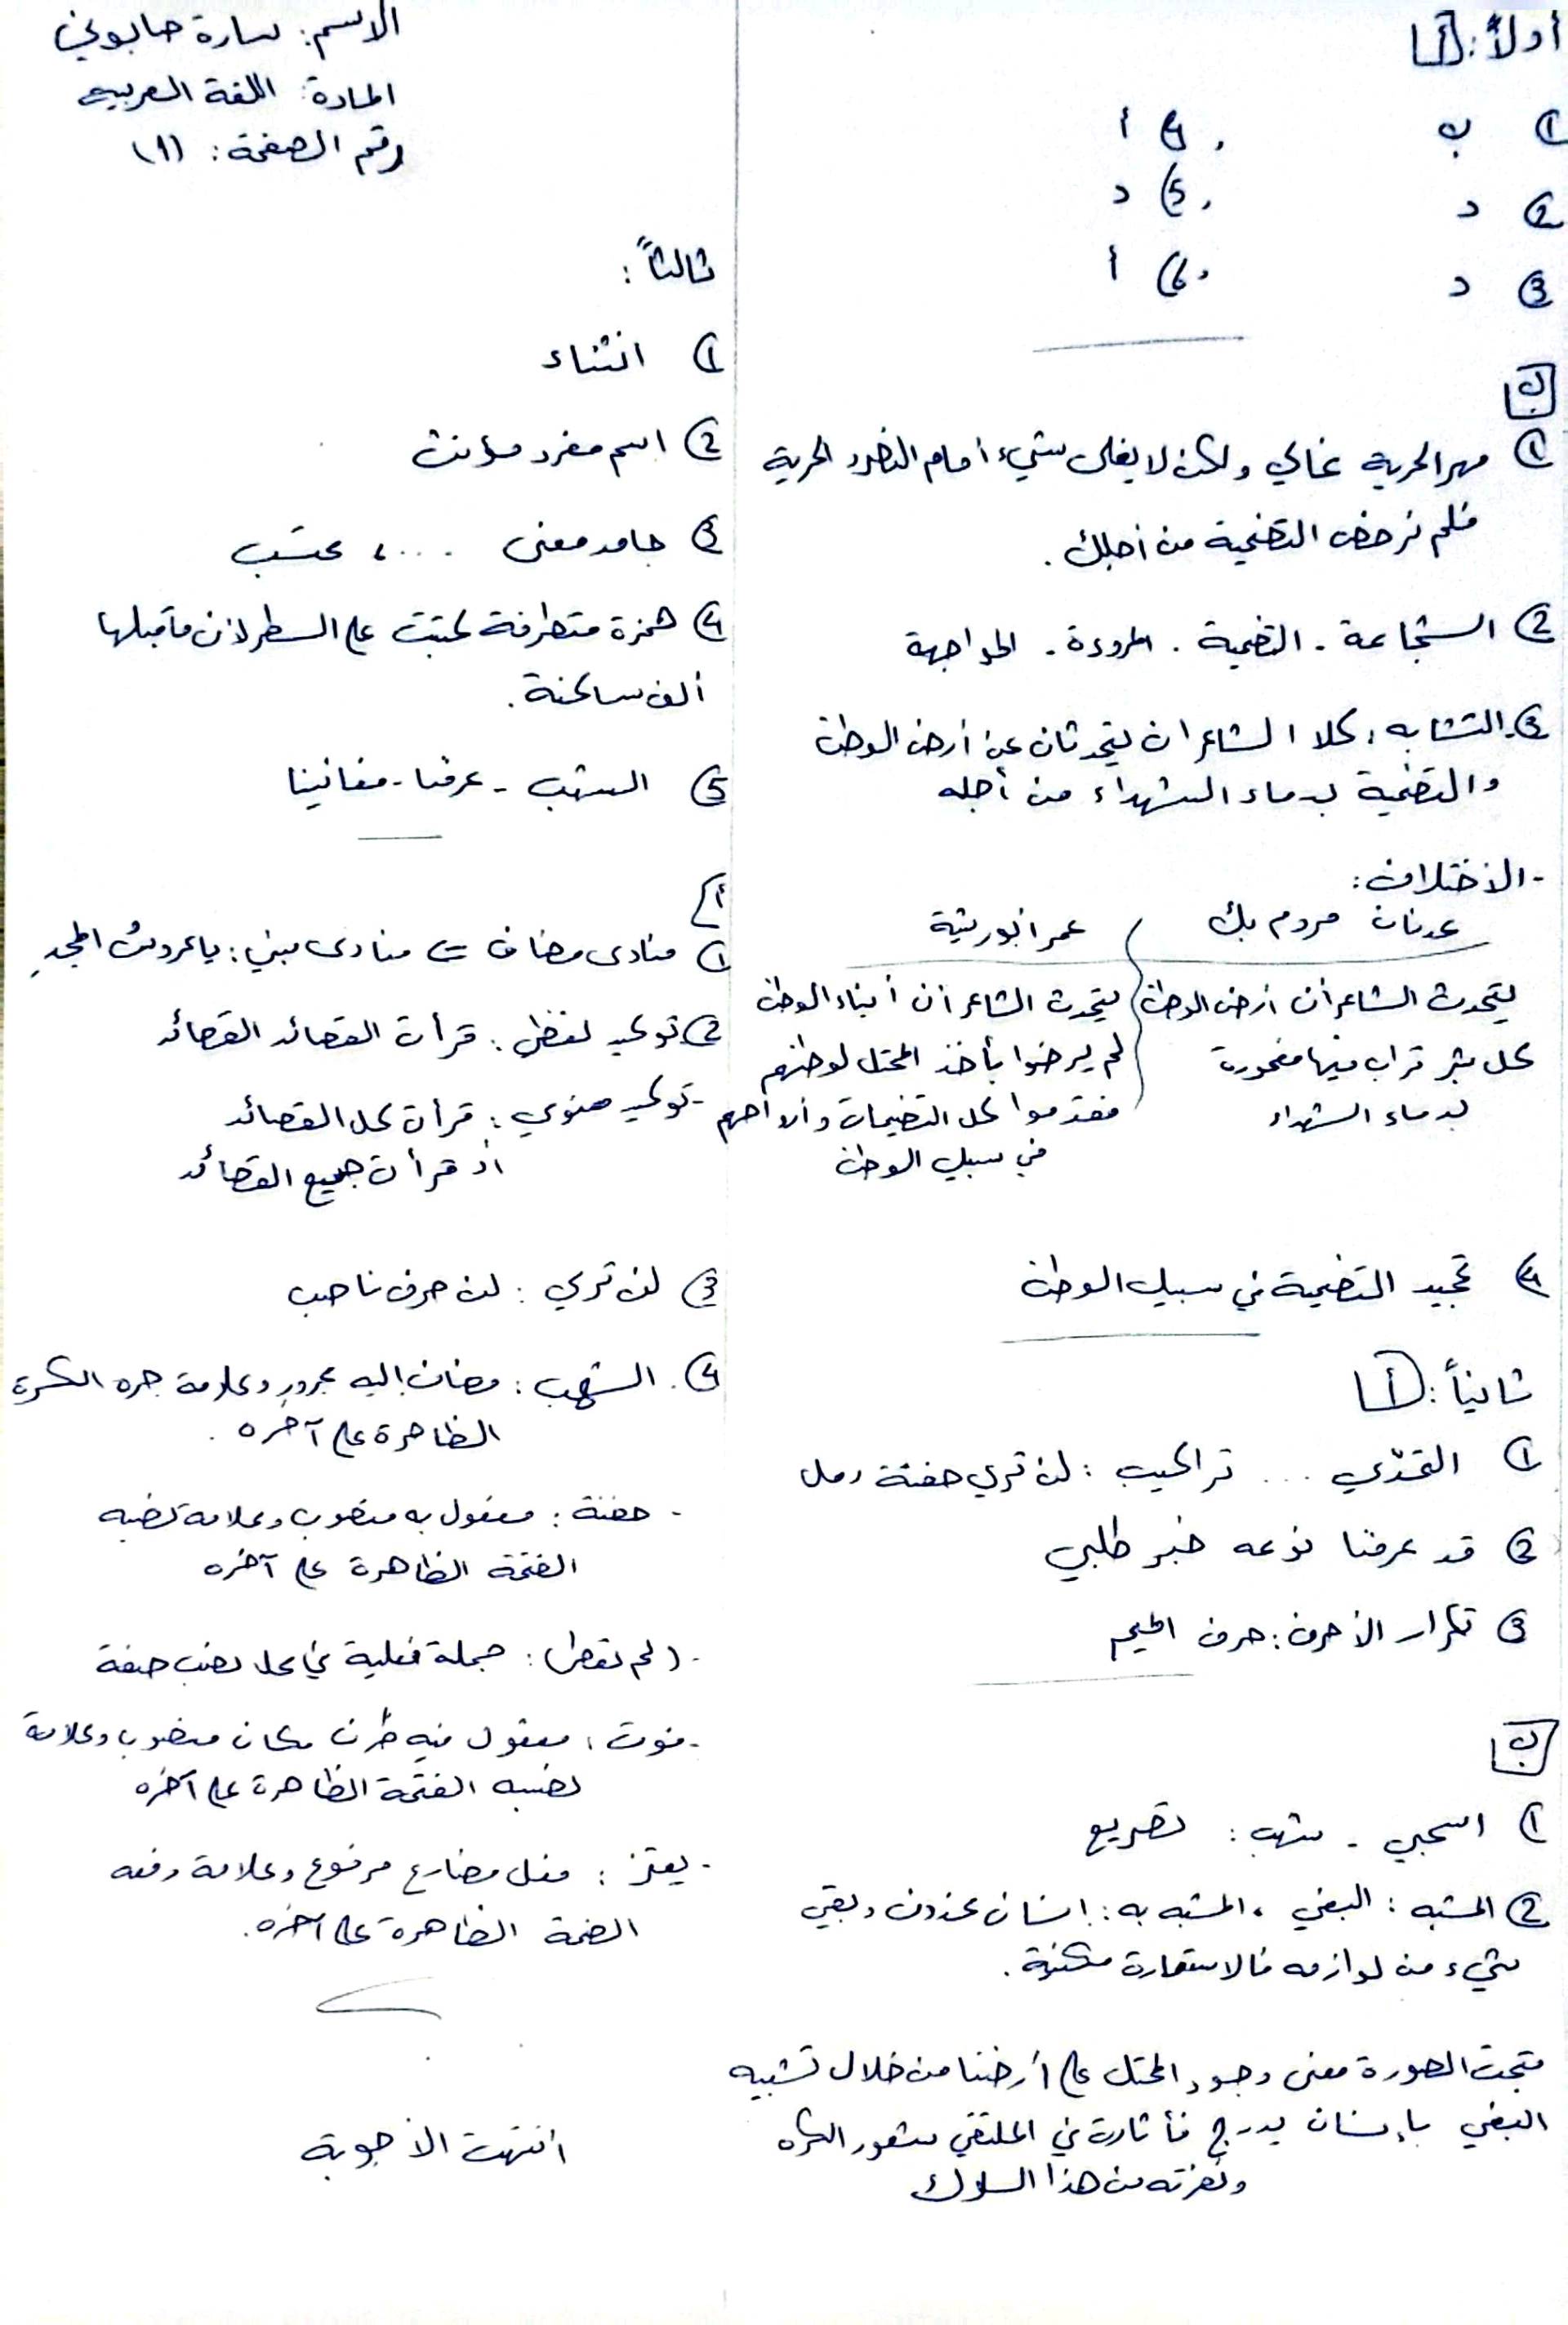 الاسم: سارة صابوني
المادة: اللغة العربية
رقم الصفحة: (١)
أولاً: أ
1) ب
4) أ
2) د
5) د
3) د
6) أ
ب
1) مهر الحرية غالي ولكن لا يغلى شيء أمام النصر و الحرية
فلم نرخص التضحية من أجلك.
2) الشجاعة - التضحية - المروءة - المواجهة
3) التشابه: كلا الشاعران يتحدثان عن أرض الوطن
والتضحية بدماء الشهداء من أجله
- الاختلاف:
عدنان مردم بك
عمر أبو ريشة
يتحدث الشاعر أن أرض الوطن
كل شبر تراب فيها مغمورة
بدماء الشهداء
يتحدث الشاعر أن أبناء الوطن
لم يرضوا بأخذ المحتل لوطنهم
فقدموا كل التضحيات وأرواحهم
في سبيل الوطن
4) تمجيد التضحية في سبيل الوطن
ثانياً: أ
1) التحدّي ... تراكيب: لن تري حفنة رمل
2) قد عرفنا نوعه خبر طلبي
3) تكرار الأحرف: حرف الميم
ب
1) اسحبي - شهب: تصريع
2) المشبه: البغي، المشبه به: إنسان محذوف وبقي
شيء من لوازمه فالاستعارة مكنية.
فتجت الصورة معنى وجود المحتل على أرضنا من خلال تشبيه
البغي بإنسان يدرج فأثارت في المتلقي شعور الكره
ونفرته من هذا السلوك
ثالثاً:
1) انتشاء
2) اسم مفرد مؤنث
3) جامد معنى ...،
4) همزة متطرفة كتبت على السطر لأن ما قبلها
ألف ساكنة.
5) الشهب - عرفنا - مغانينا
أ
1) منادى مضاف ← منادى مبني: يا عروسُ المجدِ
2) توكيد لفظي: قرأت القصائد القصائد
- توكيد معنوي: قرأت كل القصائد
أو قرأت جميع القصائد
3) لن تري: لن حرف ناصب
4) الشهب: مضاف إليه مجرور وعلامة جره الكسرة
الظاهرة على آخره.
- حفنة: مفعول به منصوب وعلامة نصبه
الفتحة الظاهرة على آخره
- (لم تعطر): جملة فعلية في محل نصب صفة
- فوق: مفعول فيه ظرف مكان منصوب وعلامة
نصبه الفتحة الظاهرة على آخره
- يعتز: فعل مضارع مرفوع وعلامة رفعه
الضمة الظاهرة على آخره.
انتهت الأجوبة